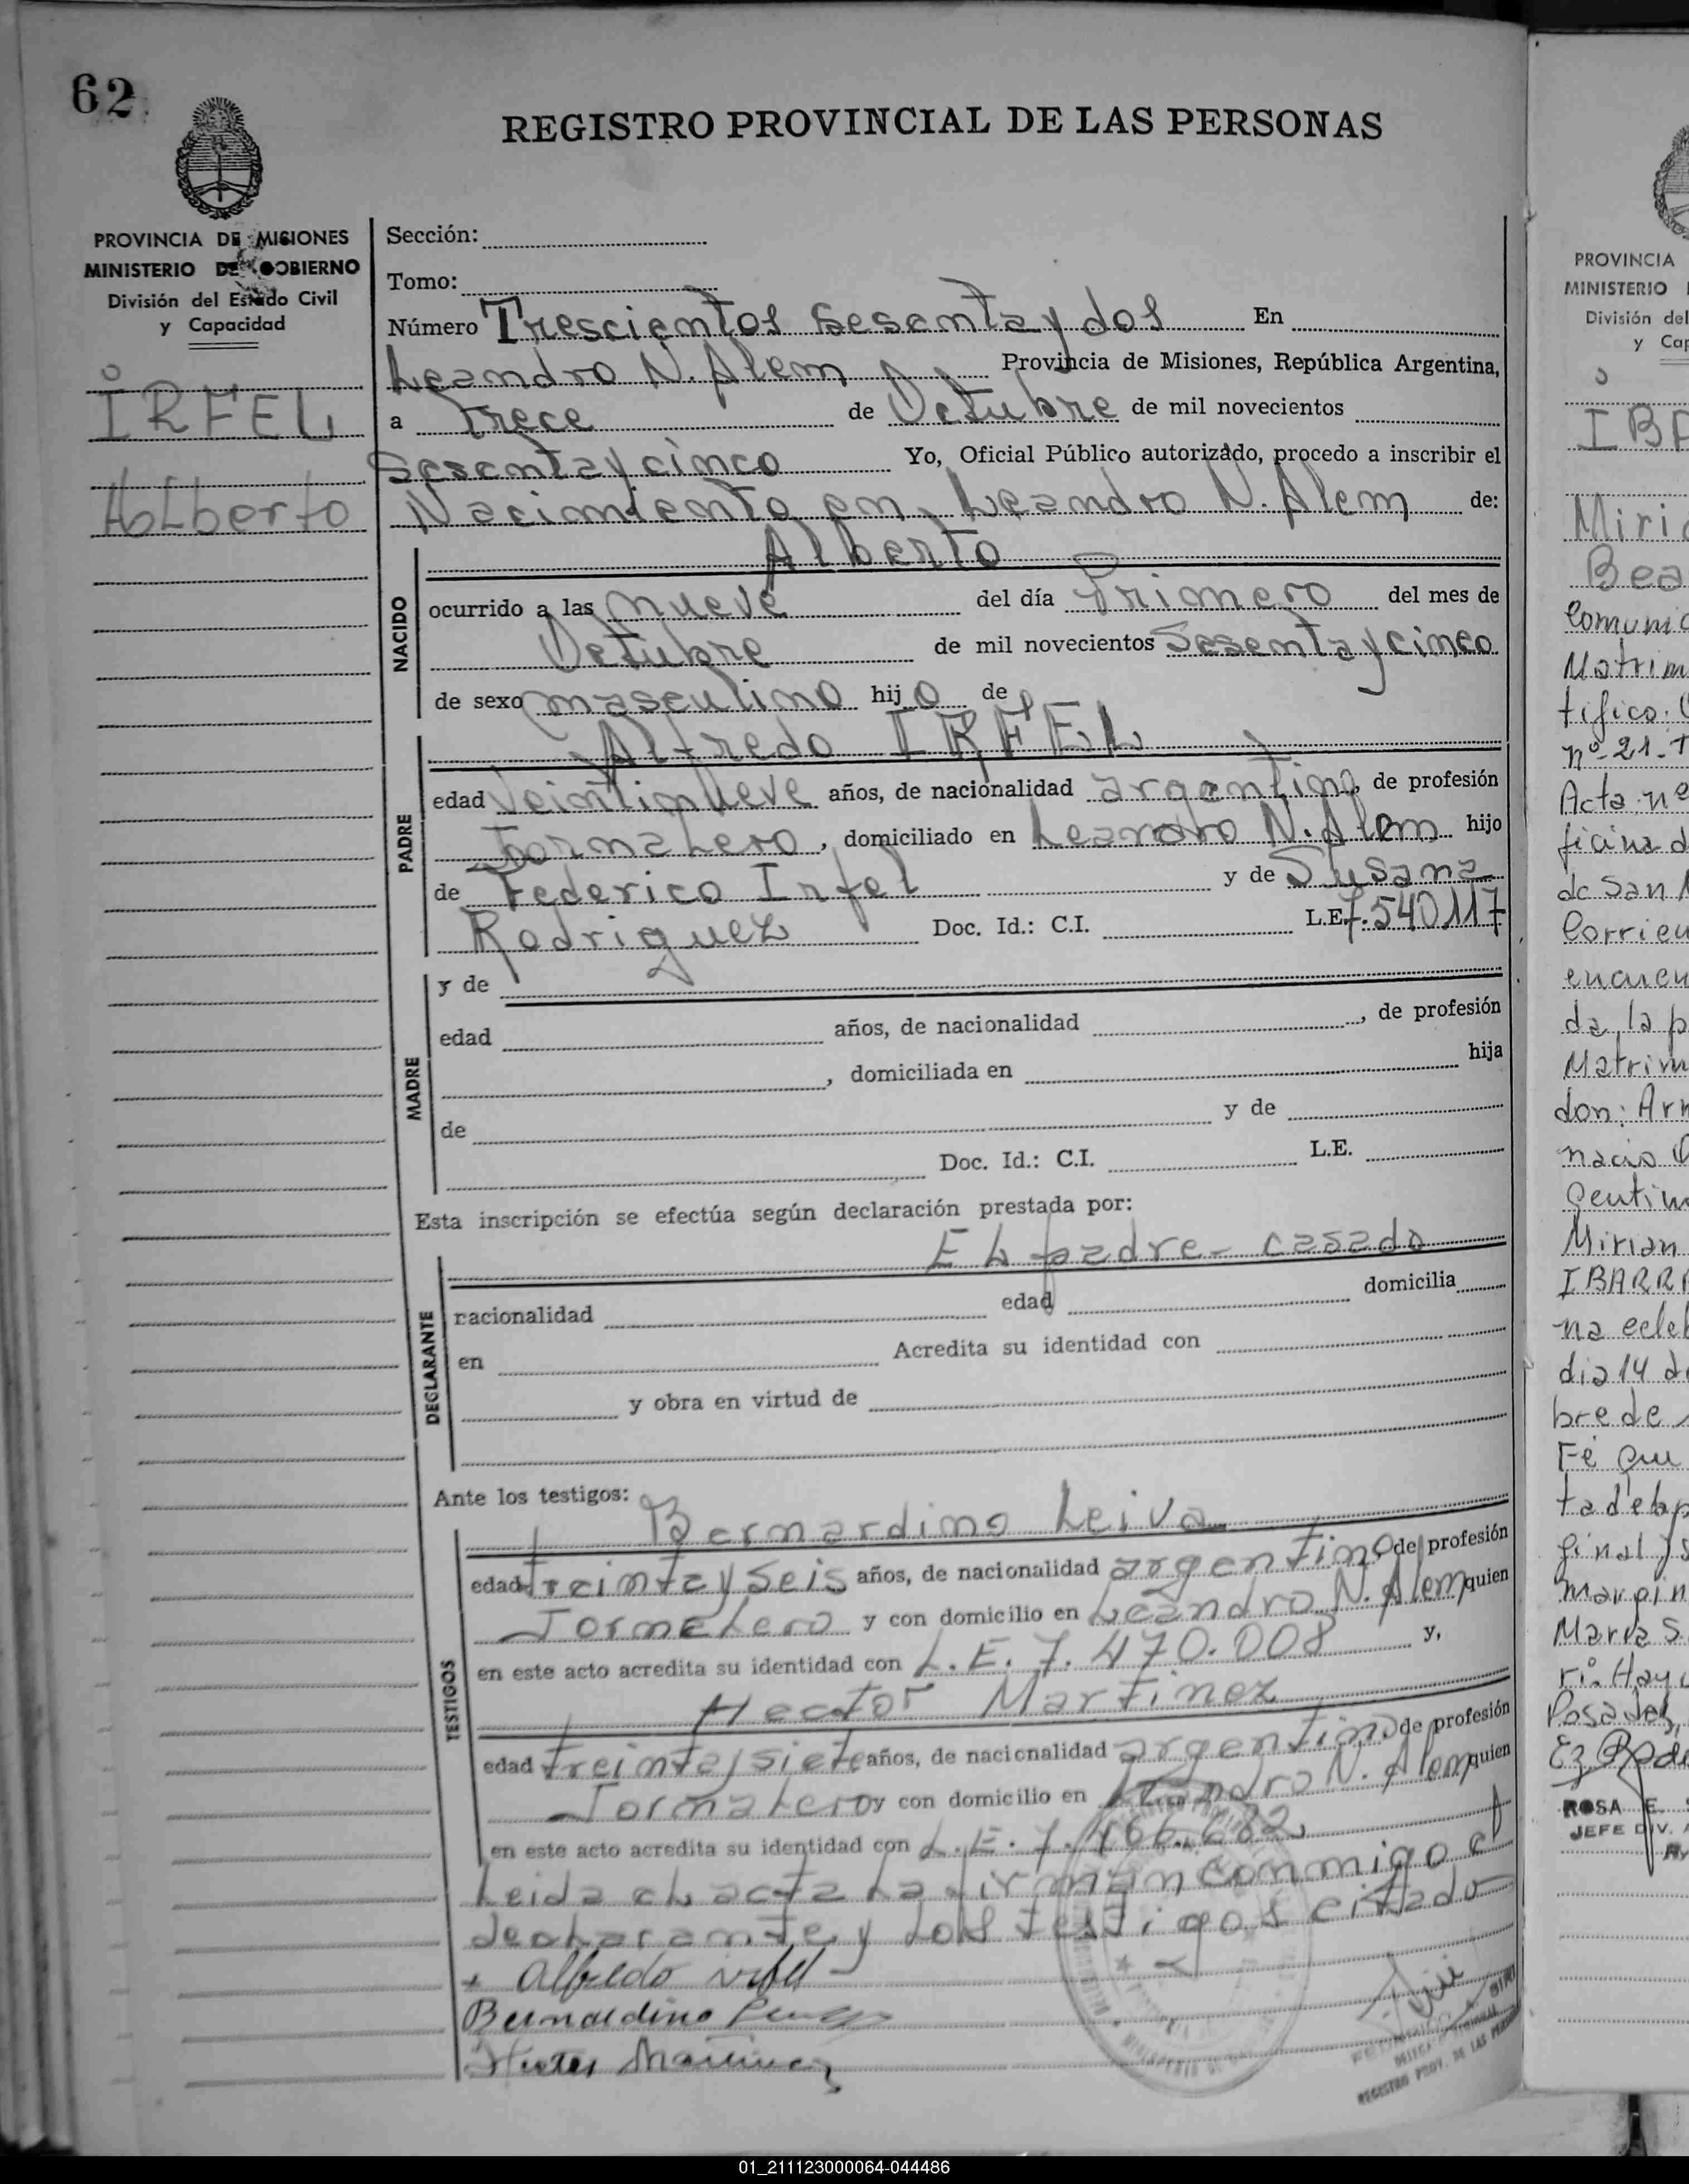 62
REGISTRO PROVINCIAL DE LAS PERSONAS
PROVINCIA DE MISIONES
MINISTERIO DE GOBIERNO
División del Estado Civil
y Capacidad
IRFEL
Alberto
Sección:
Tomo:
Número Trescientos sesenta y dos En
Leandro N. Alem Provincia de Misiones, República Argentina,
a Trece de Octubre de mil novecientos
Sesenta y cinco Yo, Oficial Público autorizado, procedo a inscribir el
Nacimiento en Leandro N. Alem de:
Alberto
NACIDO
ocurrido a las nueve del día Primero del mes de
Octubre de mil novecientos Sesenta y cinco
de sexo masculino hijo de
Alfredo IRFEL
PADRE
edad Veintinueve años, de nacionalidad argentino, de profesión
Jornalero, domiciliado en Leandro N. Alem hijo
de Federico Irfel y de Susana
Rodriguez Doc. Id.: C.I. L.E. 7.540.117
MADRE
y de
edad años, de nacionalidad , de profesión
, domiciliada en hija
de y de
Doc. Id.: C.I. L.E.
Esta inscripción se efectúa según declaración prestada por:
El padre - casado
DECLARANTE
nacionalidad edad domicilia
en Acredita su identidad con
y obra en virtud de
Ante los testigos:
Bernardino Leiva
TESTIGOS
edad treinta y seis años, de nacionalidad argentino de profesión
Jornalero y con domicilio en Leandro N. Alem quien
en este acto acredita su identidad con L.E. 7.470.008 y,
Hector Martinez
edad treinta y siete años, de nacionalidad argentino de profesión
Jornalero y con domicilio en Leandro N. Alem quien
en este acto acredita su identidad con L.E. 7.466.682
Leida el acta la firman conmigo el
declarante y los testigos citado
Alfredo Irfel
Bernardino
Hector Martinez
REGISTRO PROV. DE LAS PERSONAS
PROVINCIA
MINISTERIO
División del
y Cap
Miri
Bea
Comunic
Matrim
tifico:
nº 21 - T
Acta nº
ficina d
de San
Corrien
encuen
da la p
Matrim
don: Ar
nacio
gentin
Mirian
IBARR
na celeb
dia 14 d
bre de
Fé que
ginal y s
margin
Maria S.
ri. Hay
Posadas,
ROSA E.
JEFE DIV.
01_211123000064-044486